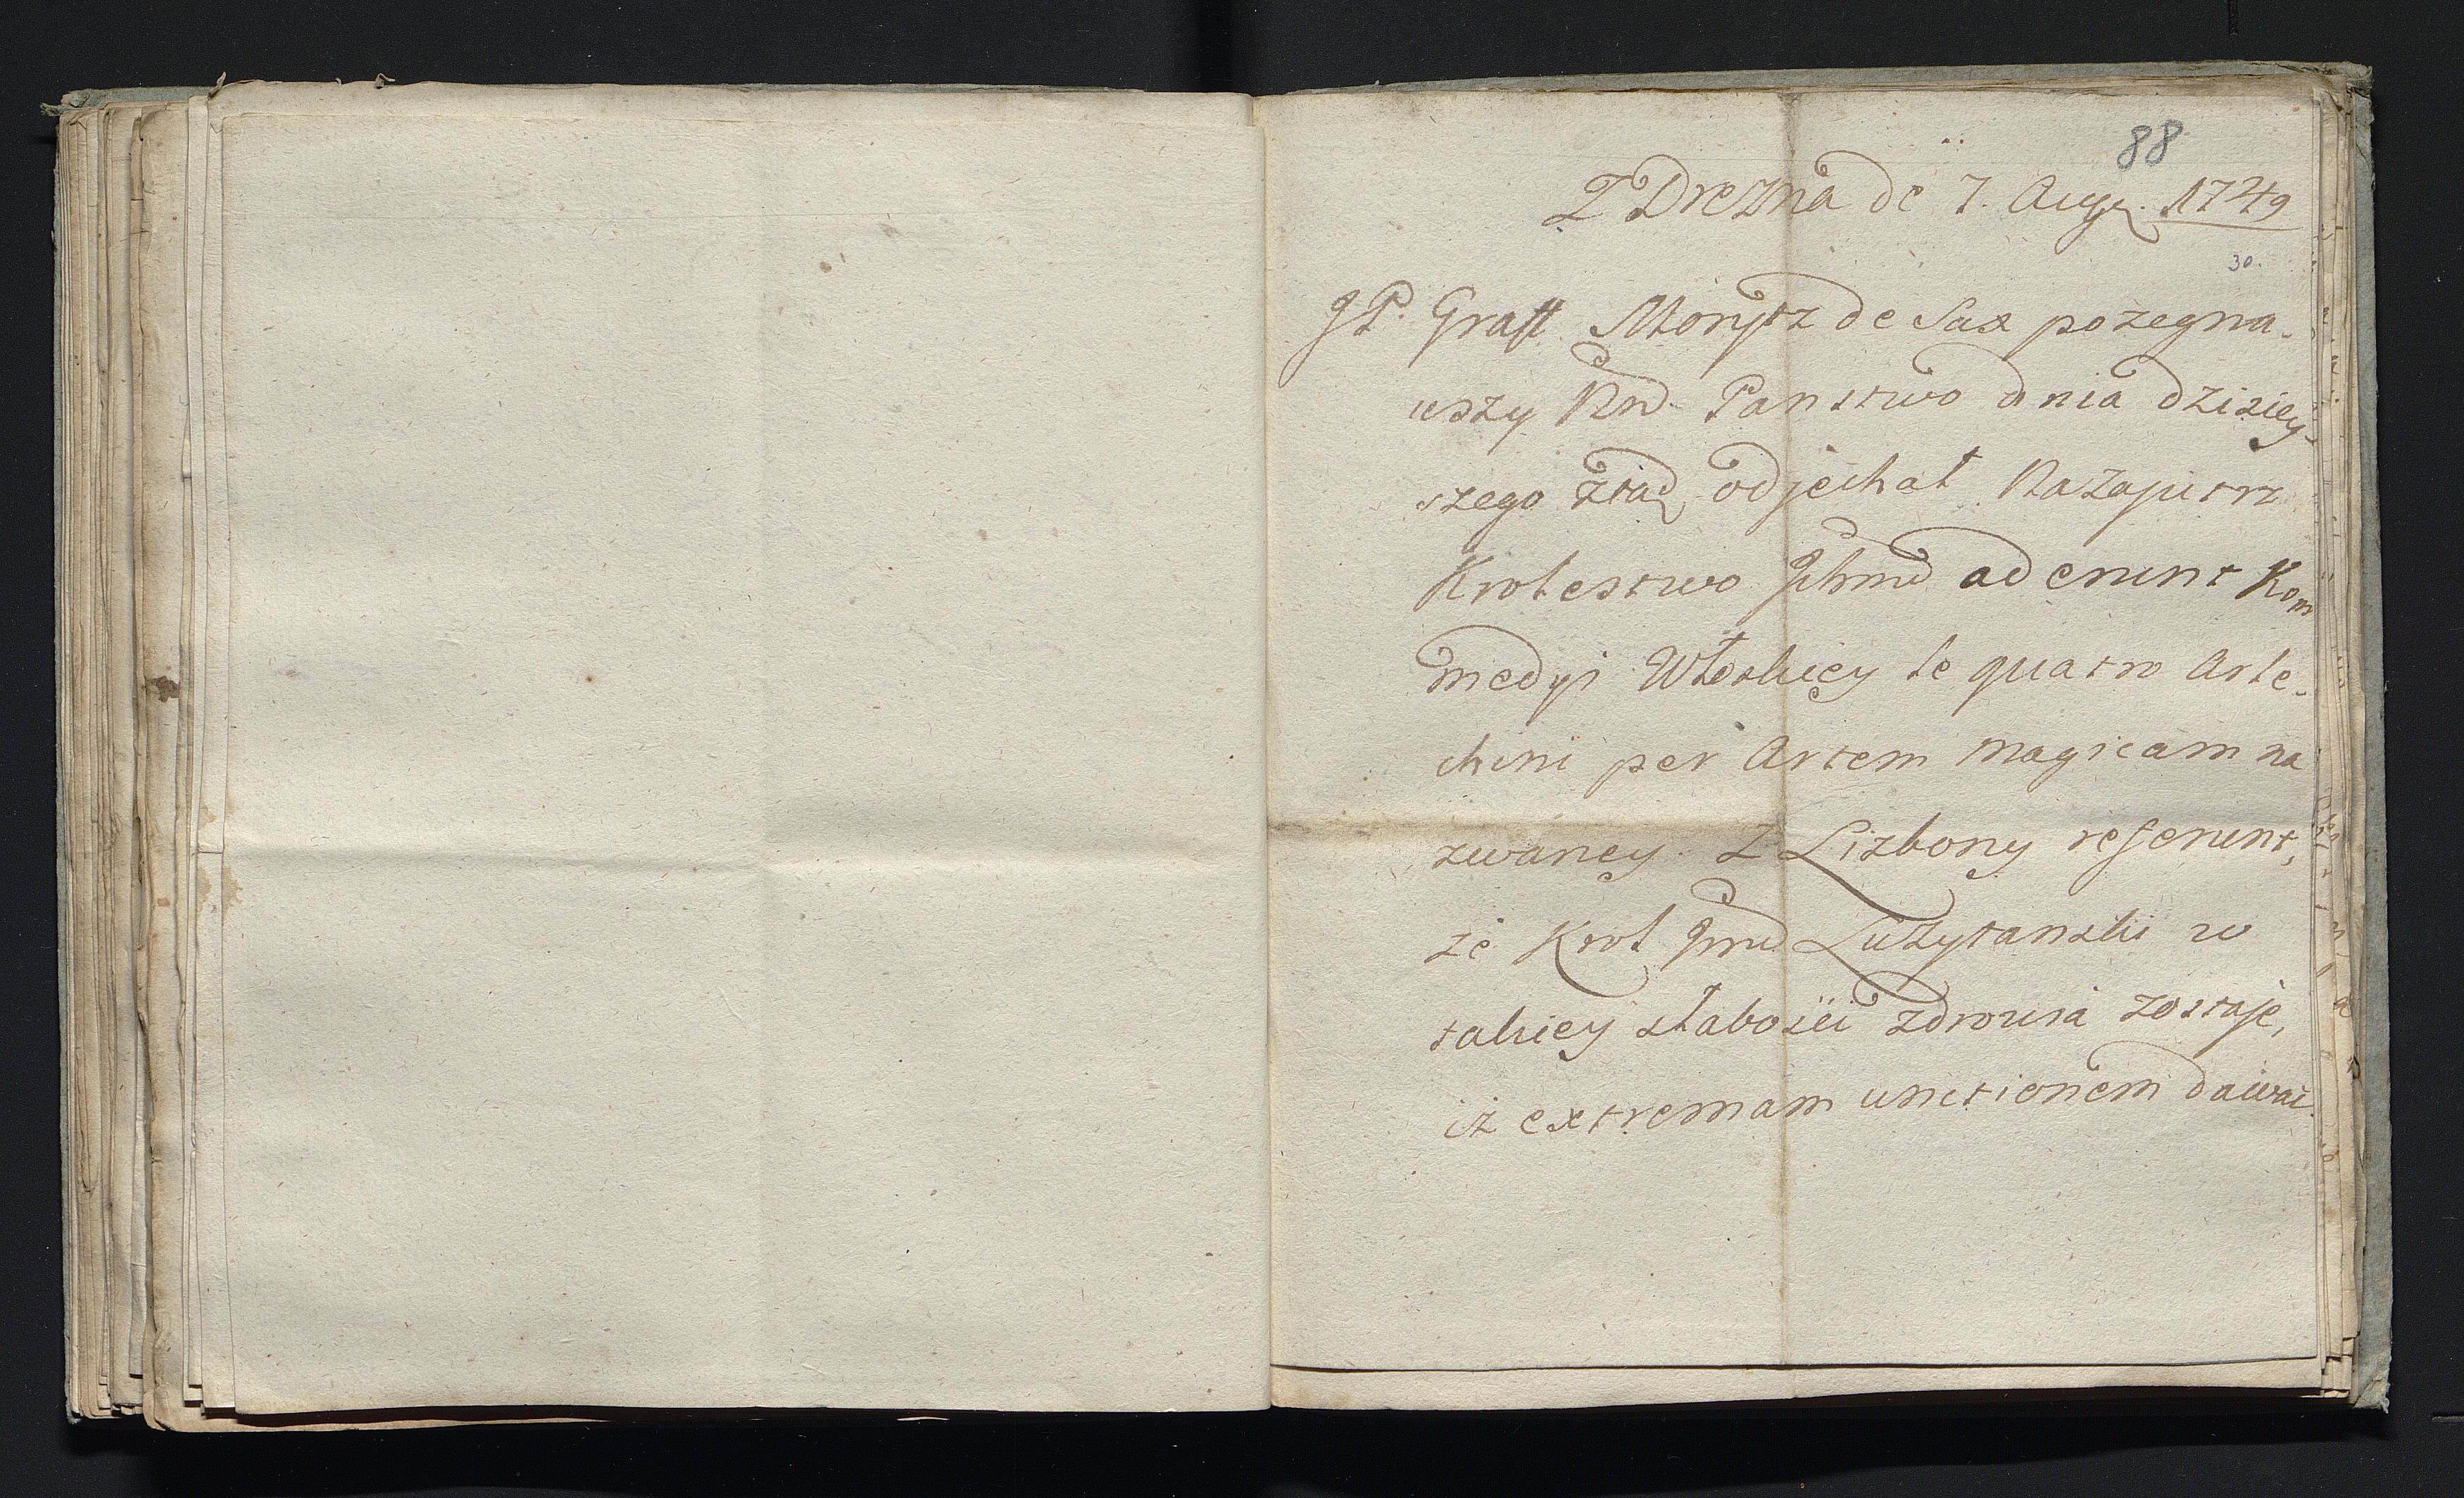 88
Z Drezna de 7. Aug. 1749
30.
JP. Graff Morytz de Sax pozegna-
wszy Kro. Panstwo dnia dzisiey-
szego ztąd odjechał Nazajutrz
Krolestwo Jchmć aderunt Kom
medyi Włoskiey le quatro Arle-
chini per Artem magicam na
zwaney. Z Lizbony referunt,
że Krol Jmć Luzytanski w
takiey słabości zdrowia zostaje,
iż extremam unctionem dawać